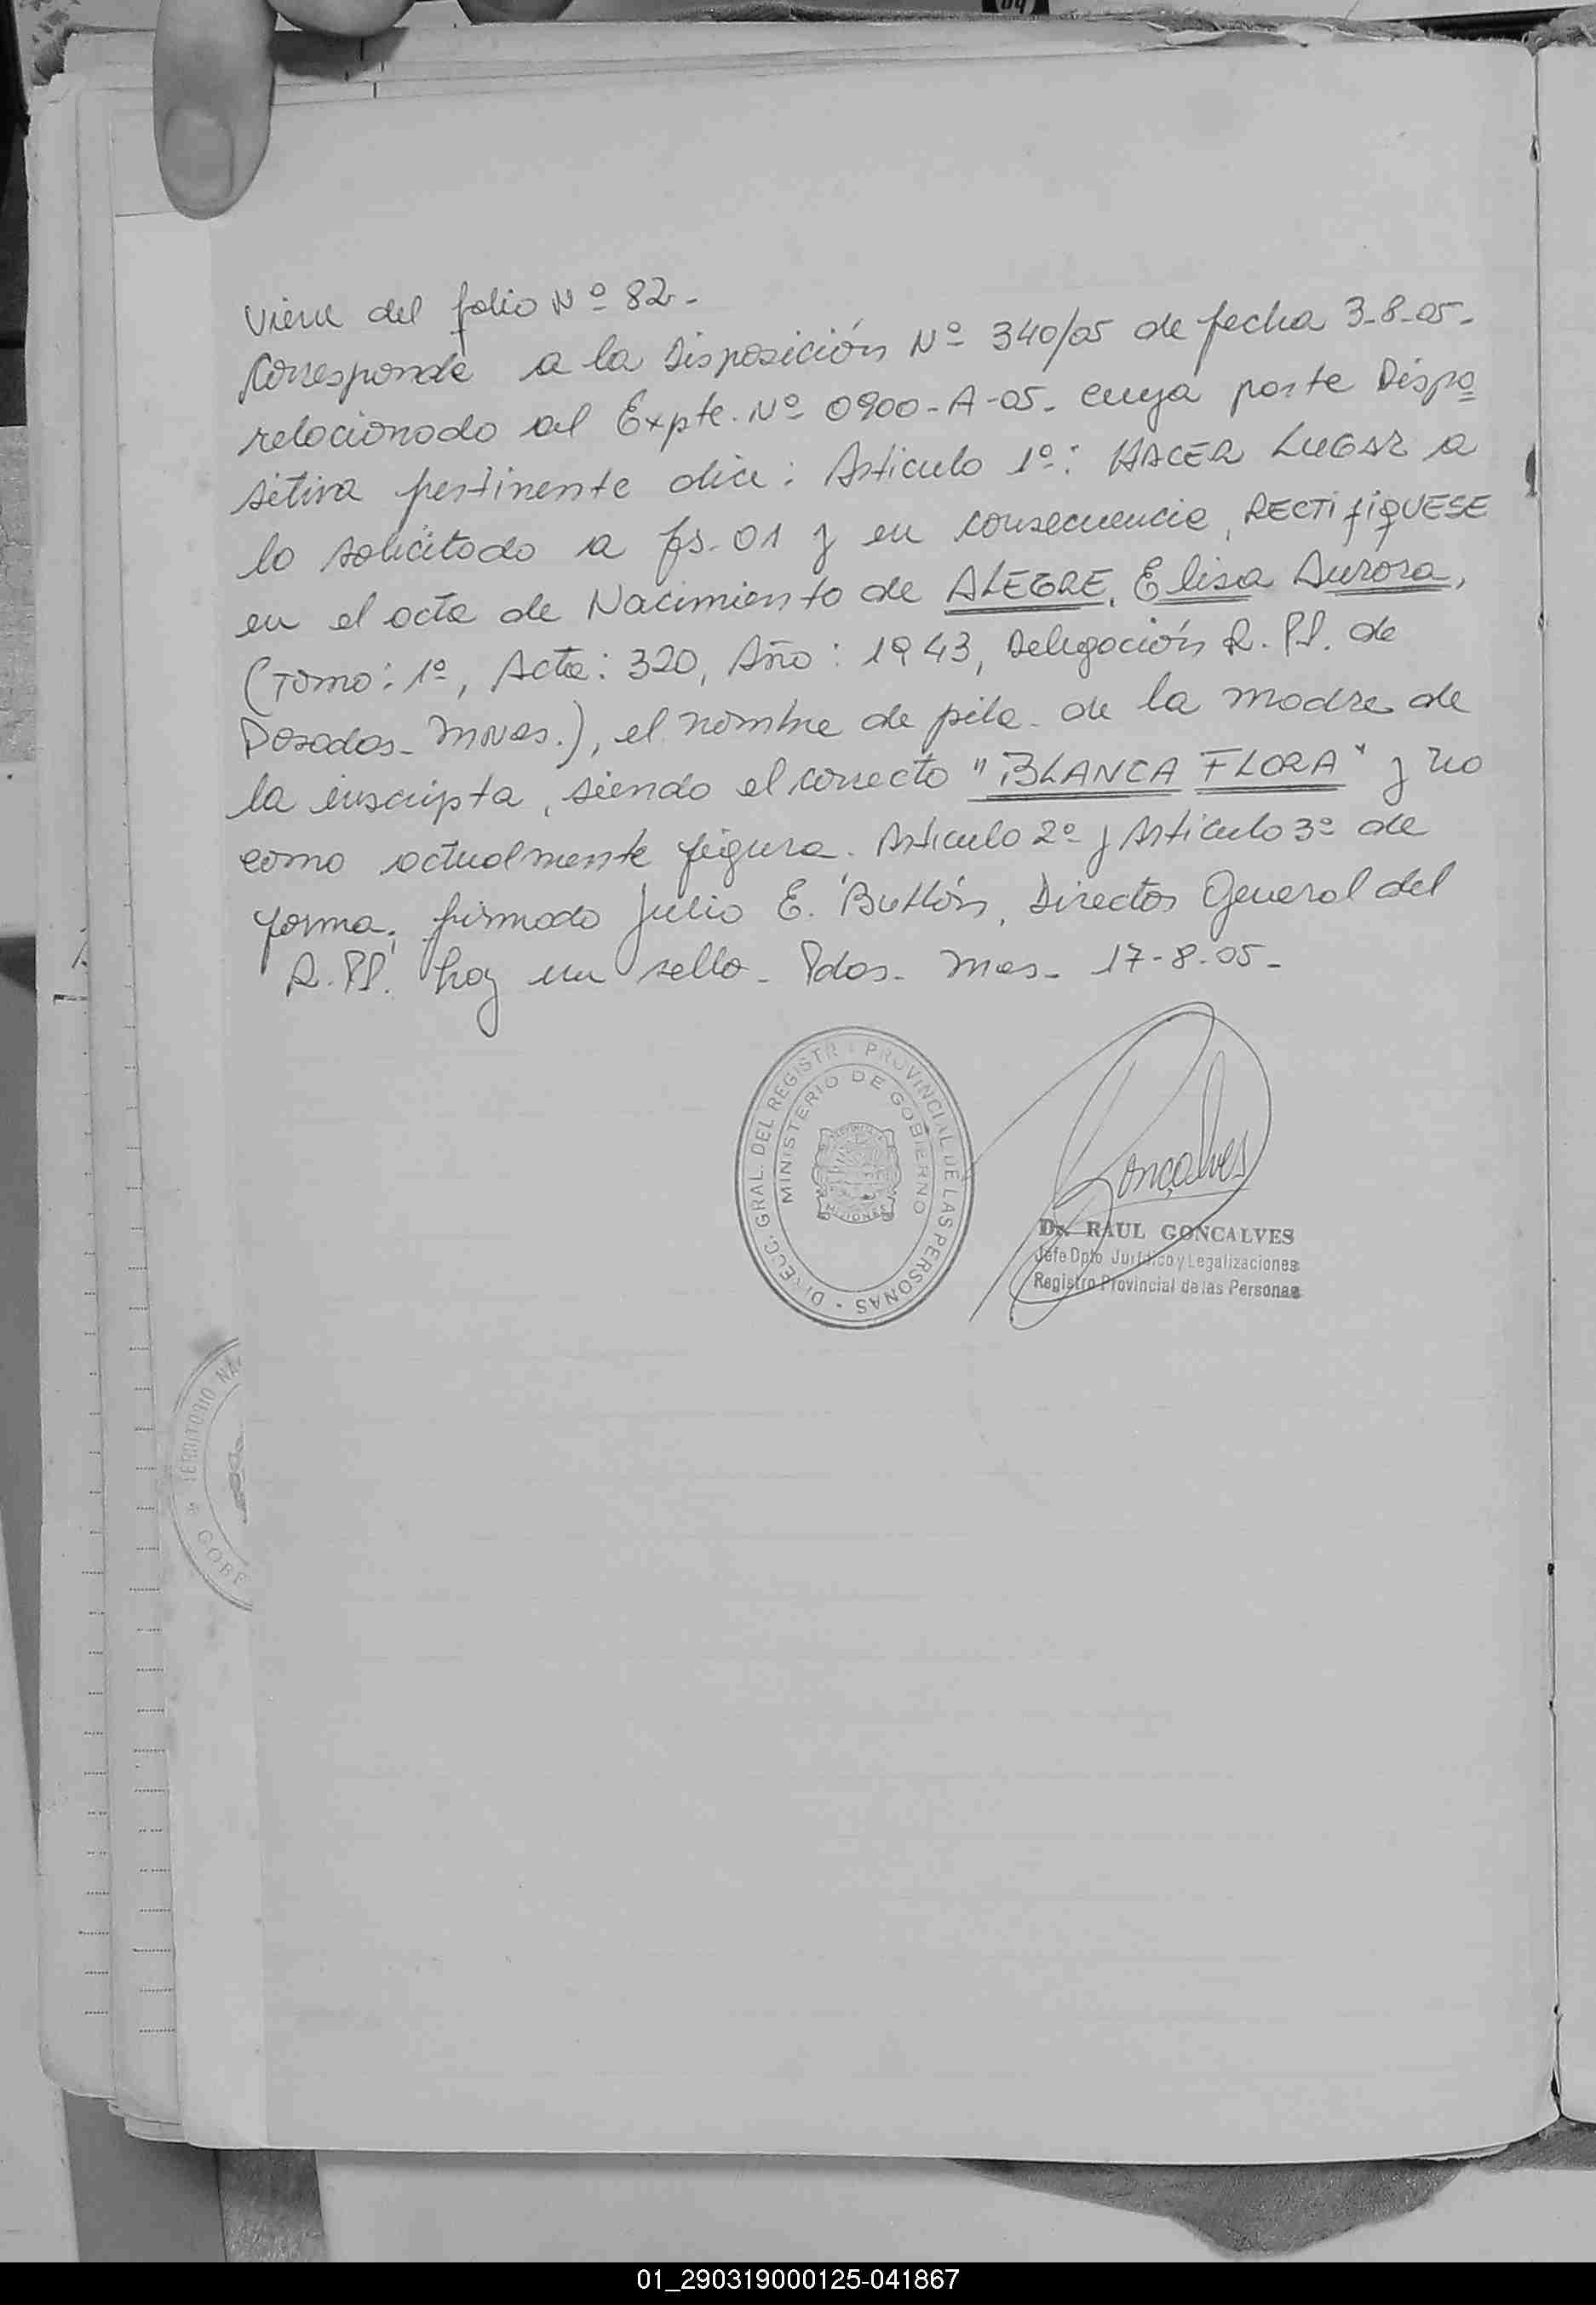 Viene del folio Nº 82-
Corresponde a la Disposición Nº 340/05 de fecha 3-8-05-
relacionado al Expte. Nº 0900-A-05- cuya parte Dispo
sitiva pertinente dice: Artículo 1º: HACER LUGAR a
lo solicitado a fs. 01 y en consecuencia, RECTIFIQUESE
en el acta de Nacimiento de ALEGRE, Elisa Aurora,
(Tomo: 1º, Acta: 320, Año: 1943, Delegación R. PP. de
Posadas- Mnes.), el nombre de pila de la madre de
la inscripta, siendo el correcto "BLANCA FLORA" y no
como actualmente figura. Artículo 2º y Artículo 3º de
forma, firmado Julio E. Butlón, Director General del
R. PP. hay un sello- Pdas- Mnes- 17-8-05-
DIRECC. GRAL. DEL REGISTRO PROVINCIAL DE LAS PERSONAS
MINISTERIO DE GOBIERNO
MISIONES
Goncalves
Dr. RAUL GONCALVES
Jefe Dpto Jurídico y Legalizaciones
Registro Provincial de las Personas
TERRITORIO NA
GOBE
01_290319000125-041867